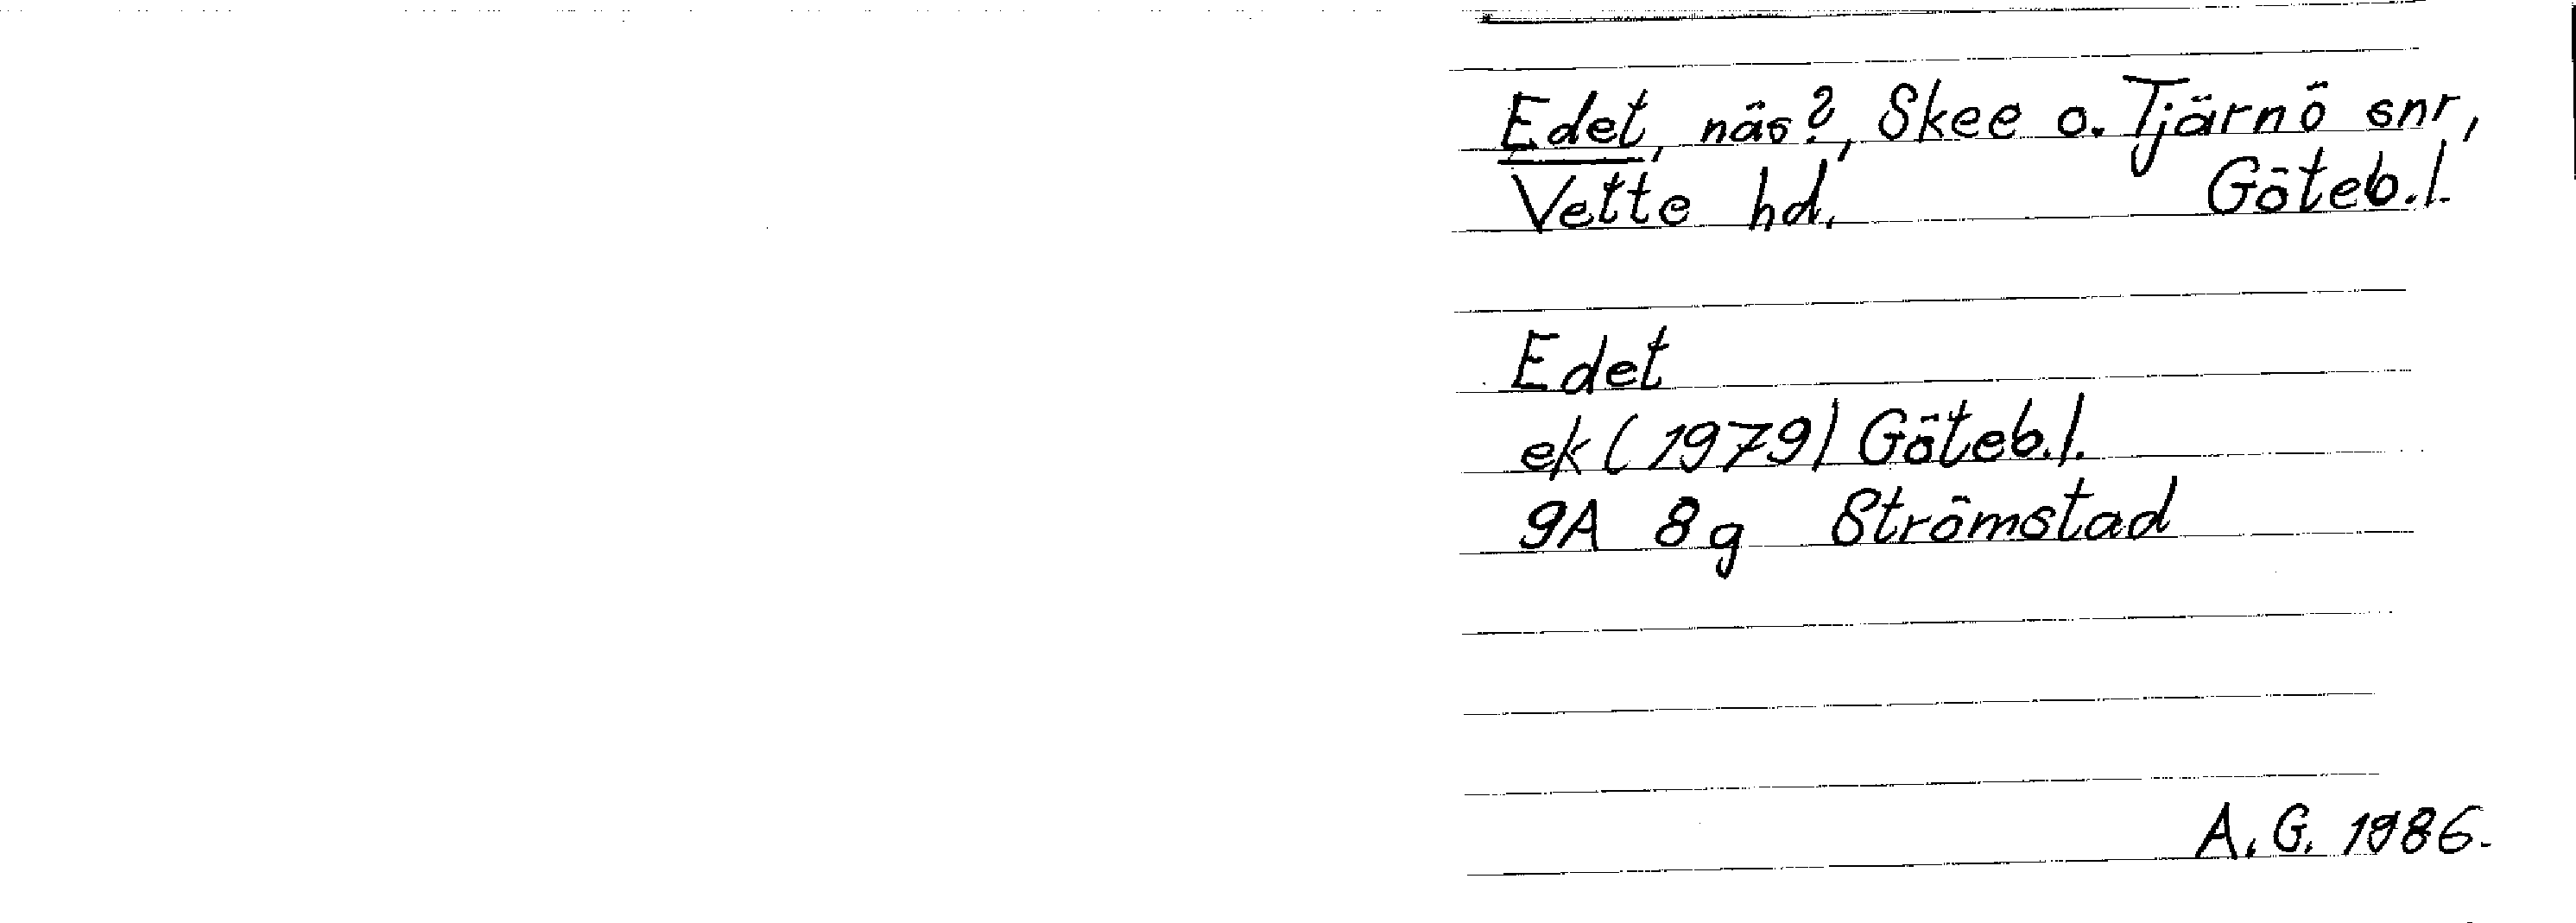 Edet, näs?, Skee o. Tjärnö snr,
Vette hd. Göteb.l.
Edet
ek (1979) Göteb.l.
9A 8g Strömstad
A.G. 1986.